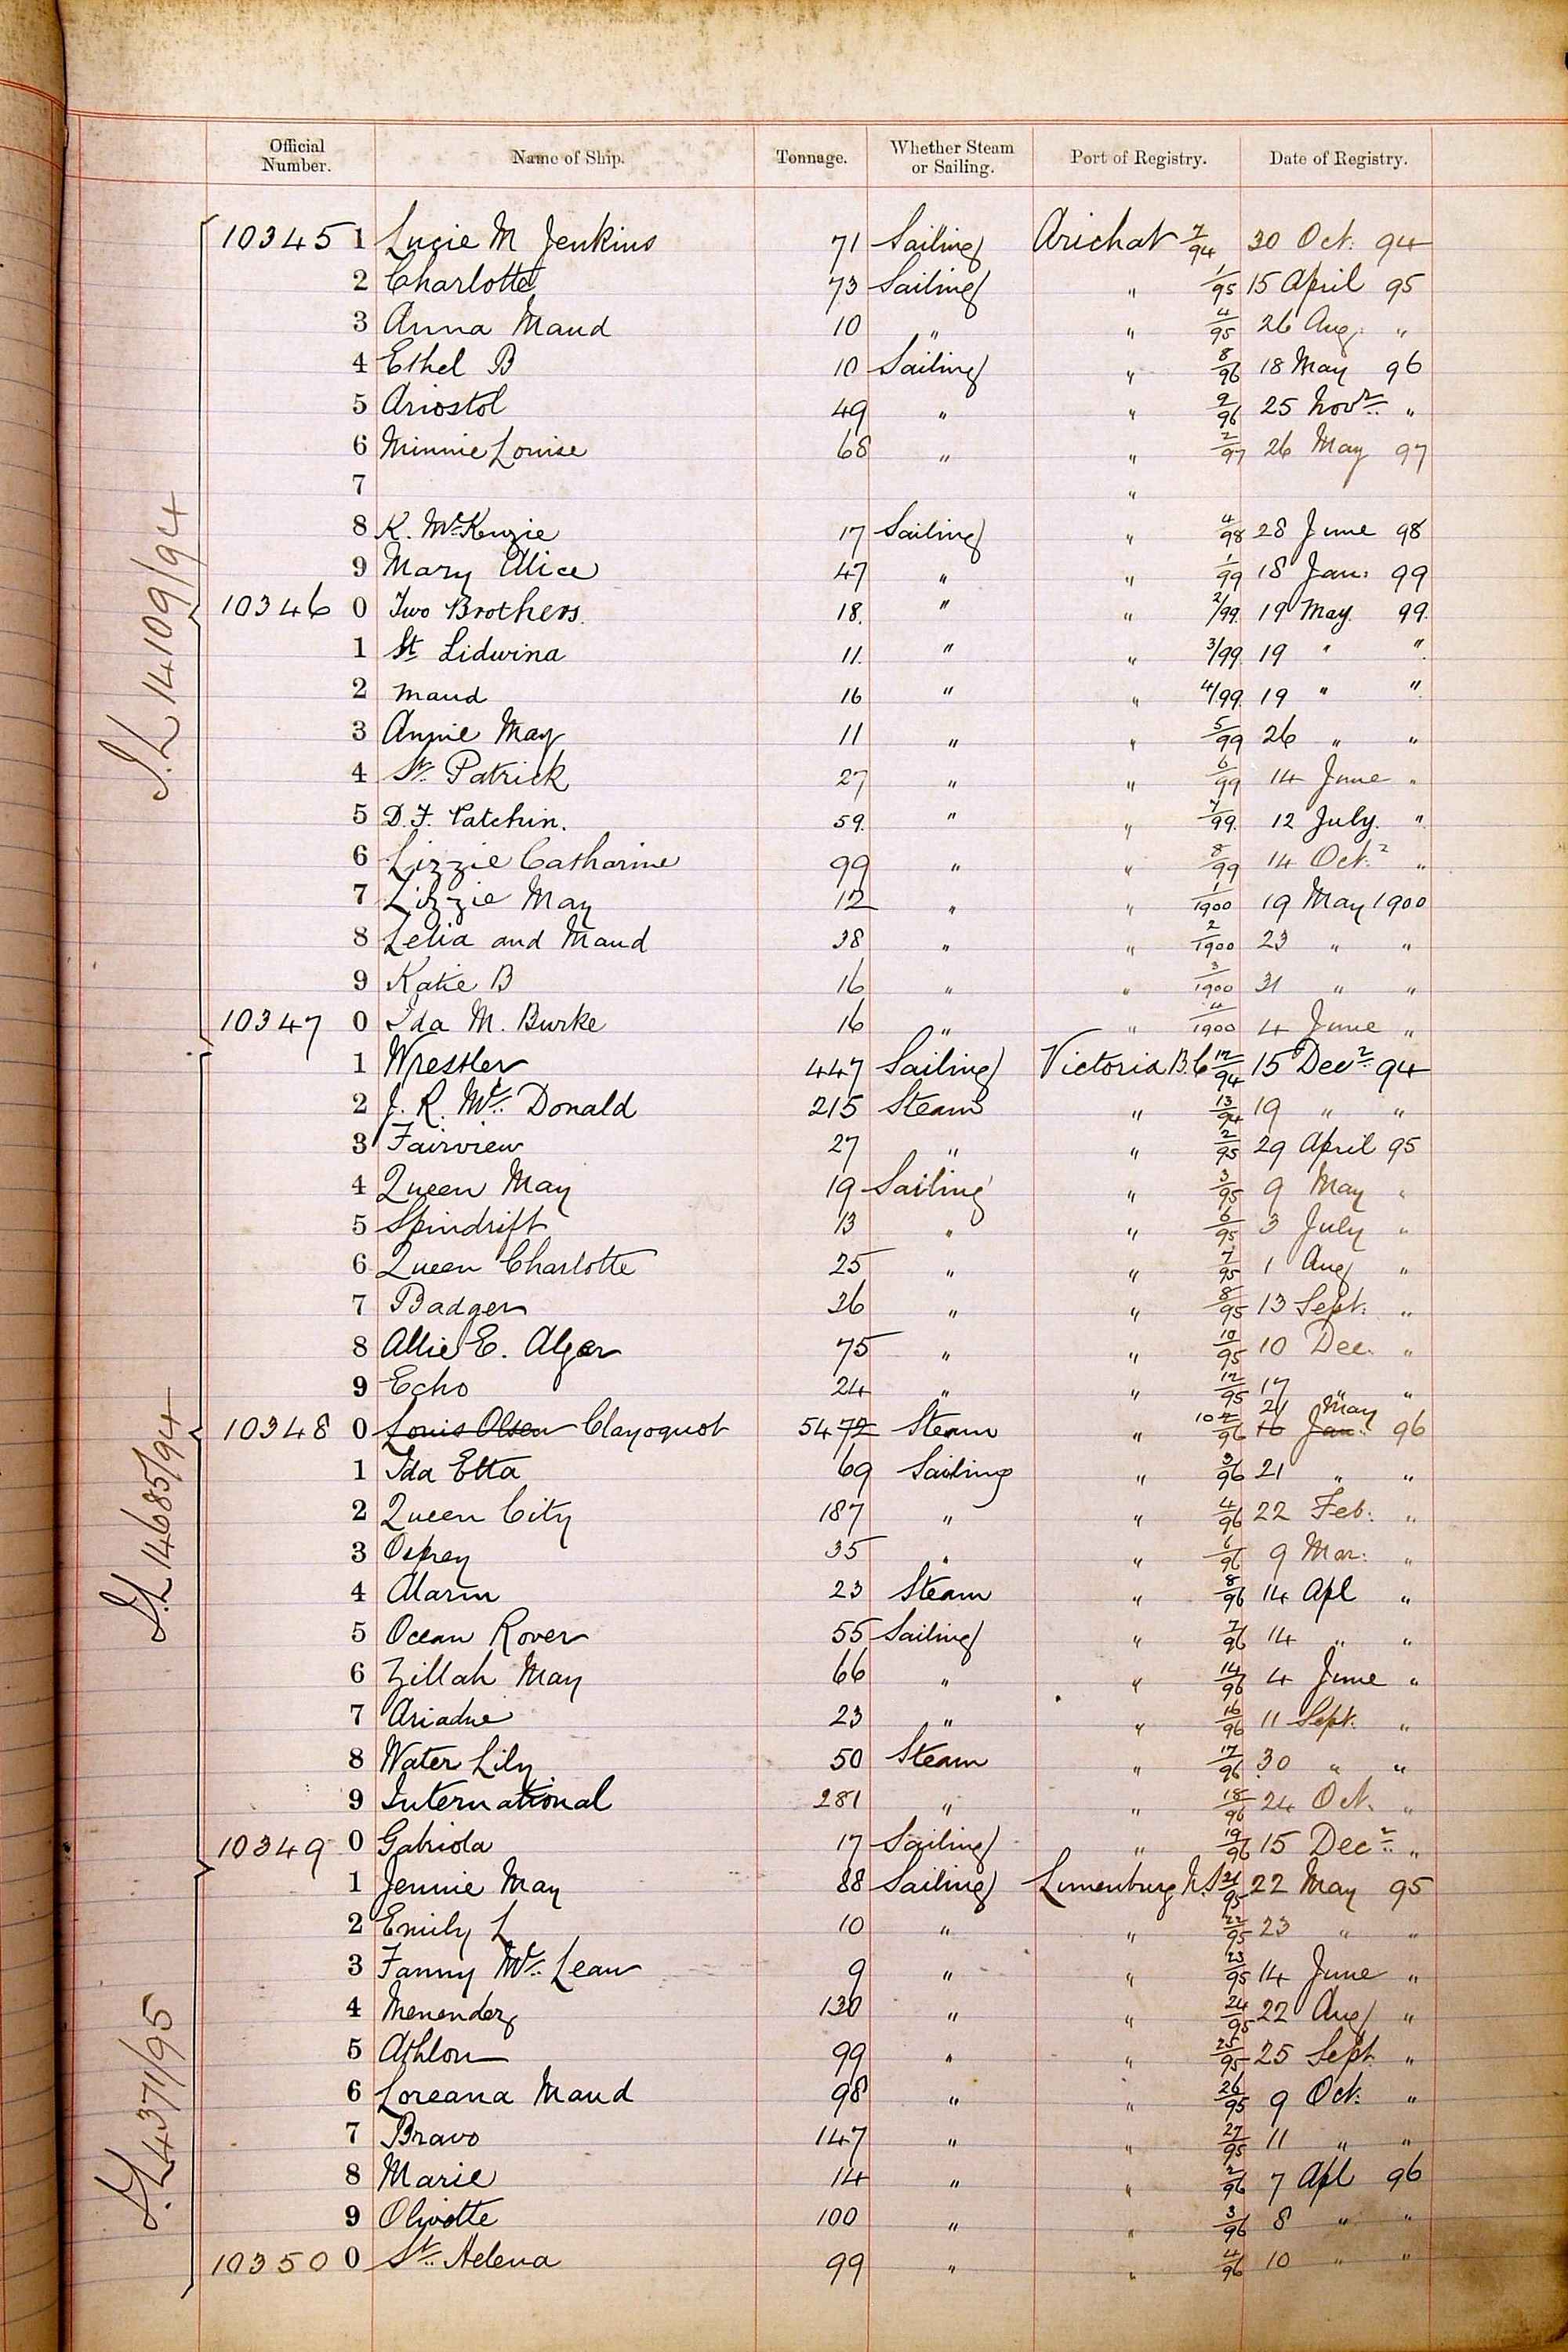 Official Number. Name of Ship. Tonnage. Whether Steam or Sailing. Port of Registry. Date of Registry.
10345 1 Lucie M Jenkins 71 Sailing Arichat 7/94 30 Oct. 94
2 Charlotte 73 Sailing " 1/95 15 April 95
3 Anna Maud 10 " " 4/95 26 Aug. "
4 Ethel B 10 Sailing " 8/96 18 May 96
5 Ariostol 49 " " 9/96 25 Novr. "
6 Minnie Louise 68 " " 2/97 26 May 97
7 "
8 K. McKenzie 17 Sailing " 4/98 28 June 98
9 Mary Alice 47 " " 1/99 18 Jan: 99
10346 0 Two Brothers. 18. " " 2/99. 19 May. 99.
1 St Lidwina 11. " " 3/99. 19 " "
2 Maud 16 " " 4/99. 19 " "
3 Annie May 11 " " 5/99 26 " "
4 St. Patrick 27 " " 6/99 14 June "
5 D. F. Patchin. 59. " " 7/99. 12 July. "
6 Lizzie Catharine 99 " " 8/99 14 Oct. "
7 Lizzie May 12 " " 1/1900 19 May 1900
8 Lelia and Maud 38 " " 2/1900 23 " "
9 Katie B 16 " " 3/1900 31 " "
10347 0 Ida M. Burke 16 " " 4/1900 4 June "
1 Wrestler 447 Sailing Victoria B.C 12/94 15 Decr. 94
2 J. R. Mc. Donald 215 Steam " 13/94 19 " "
3 Fairview 27 " " 2/95 29 April 95
4 Queen May 19 Sailing " 3/95 9 May "
5 Spindrift 13 " " 6/95 3 July "
6 Queen Charlotte 25 " " 7/95 1 Aug "
7 Badger 26 " " 8/95 13 Sept. "
8 Allie E. Alger 75 " " 10/95 10 Dec. "
9 Echo 24 " " 12/95 17 " "
10348 0 Louis Olsen Clayoquot 54 72 Steam " 10/96 21 May 16 Jan. 96
1 Ida Etta 69 Sailing " 3/96 21 " "
2 Queen City 187 " " 4/96 22 Feb: "
3 Osprey 35 " " 6/96 9 Mar: "
4 Alarm 23 Steam " 8/96 14 Apl "
5 Ocean Rover 55 Sailing " 7/96 14 " "
6 Zillah May 66 " " 14/96 4 June "
7 Ariadne 23 " " 16/96 11 Sept. "
8 Water Lily 50 Steam " 17/96 30 " "
9 International 281 " " 18/96 24 Oct. "
10349 0 Gabriola 17 Sailing " 19/96 15 Decr. "
1 Jennie May 88 Sailing Lunenburg N.S 21/95 22 May 95
2 Emily L 10 " " 22/95 23 " "
3 Fanny Mc. Lean 9 " " 23/95 14 June "
4 Menendez 130 " " 24/95 22 Aug "
5 Athlon 99 " " 25/95 25 Sept. "
6 Loreana Maud 98 " " 26/95 9 Oct. "
7 Bravo 147 " " 27/95 11 " "
8 Marie 14 " " 2/96 7 Apl 96
9 Olivette 100 " " 3/96 8 " "
10350 0 St. Helena 99 " " 4/96 10 " "
14109/94
14685/94
4371/95